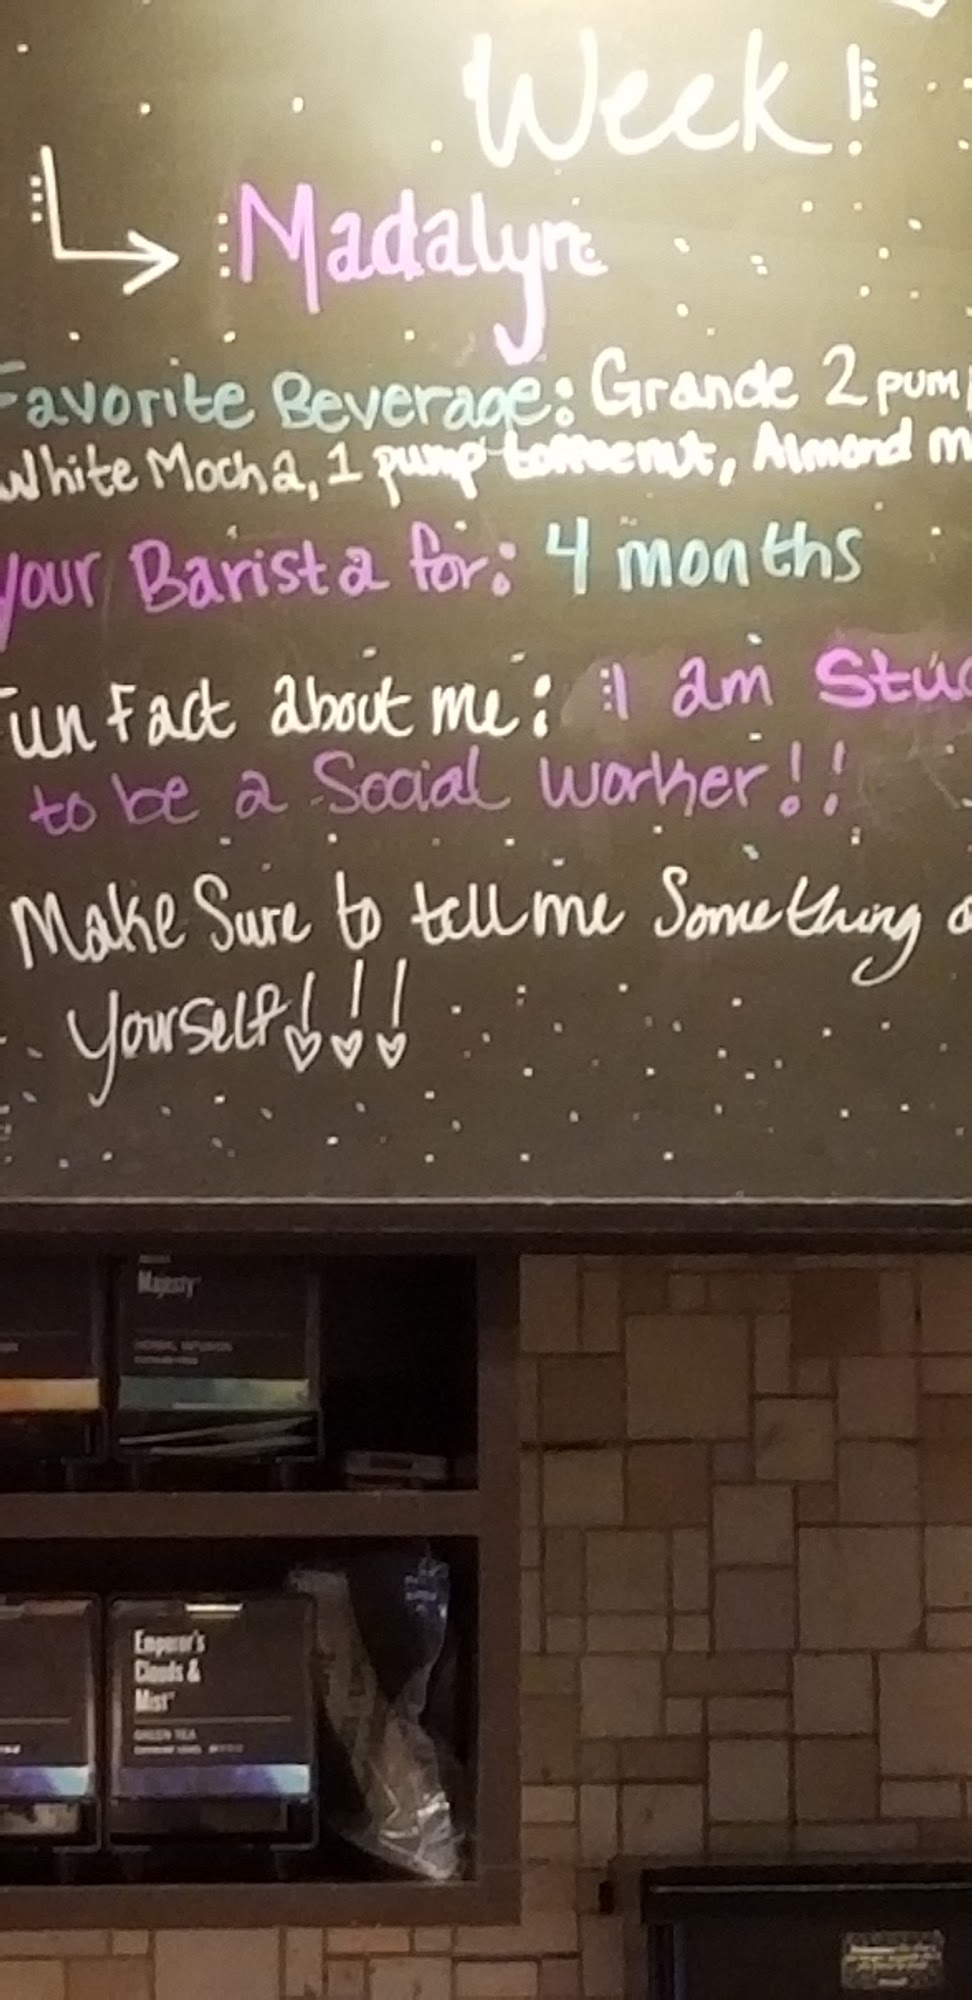 Week!
Madalyn
Favorite Beverage: Grande 2 pump
White Mocha, 1 pump toffeenut, Almond m
Your Barista for: 4 months
Fun Fact about me: I am Stud
to be a Social Worker!!
Make Sure to tell me Something a
yourself!!!
Majesty
HERBAL INFUSION
Emperor's
Clouds &
Mist
GREEN TEA